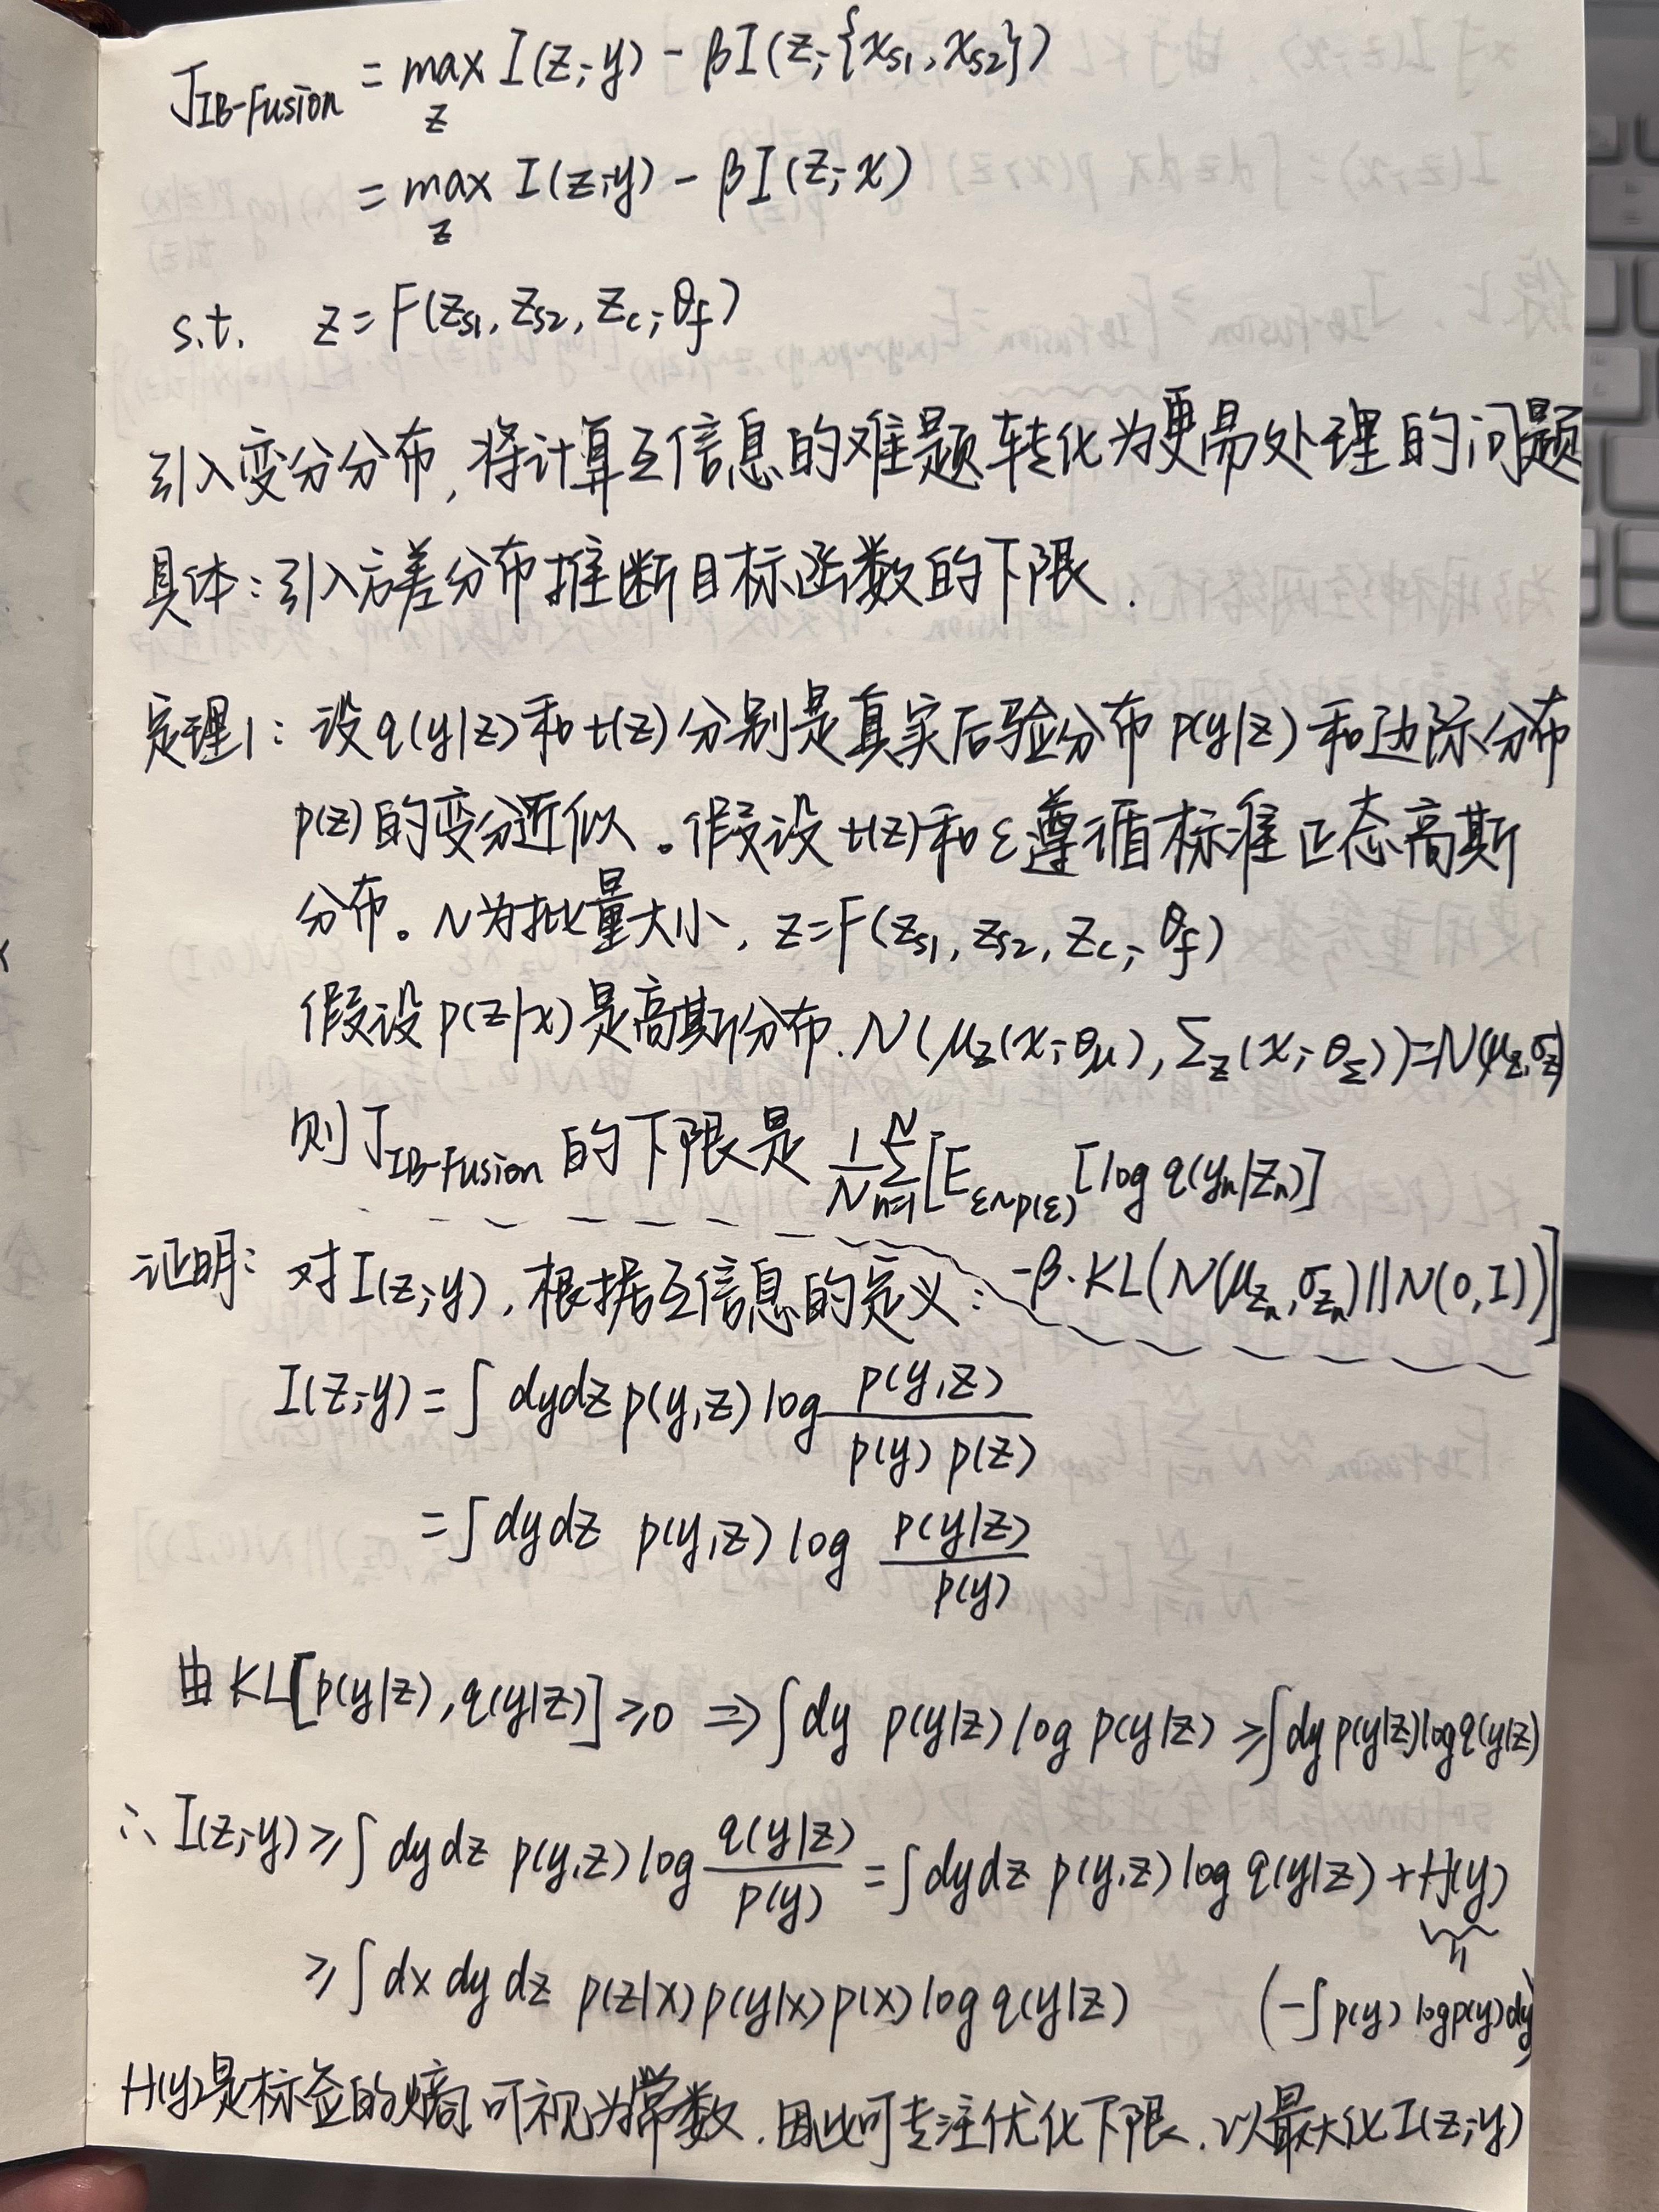 J_{IB-Fusion} = max_z I(z;y) - βI(z;{x_{s1}, x_{s2}})
= max_z I(z;y) - βI(z;x)
s.t. z = F(z_{s1}, z_{s2}, z_c; θ_f)
引入变分分布,将计算互信息的难题转化为更易处理的问题
具体:引入方差分布推断目标函数的下限.
定理1:设q(y|z)和t(z)分别是真实后验分布p(y|z)和边际分布
p(z)的变分近似。假设t(z)和ε遵循标准正态高斯
分布。N为批量大小,z=F(z_{s1}, z_{s2}, z_c; θ_f)
假设p(z|x)是高斯分布.N(μ_z(x;θ_μ), Σ_z(x;θ_Σ))=N(μ_z,σ_z)
则J_{IB-Fusion}的下限是 1/N Σ_{n=1}^{N} [E_{ε~p(ε)}[log q(y_n|z_n)]
-β·KL(N(μ_{z_n},σ_{z_n})||N(0,I))]
证明:对I(z;y),根据互信息的定义:
I(z;y) = ∫ dydz p(y,z) log p(y,z) / p(y) p(z)
= ∫ dy dz p(y,z) log p(y|z) / p(y)
由KL[p(y|z),q(y|z)]≥0 ⇒ ∫ dy p(y|z) log p(y|z) ≥ ∫ dy p(y|z) log q(y|z)
∴ I(z;y) ≥ ∫ dy dz p(y,z) log q(y|z) / p(y) = ∫ dy dz p(y,z) log q(y|z) + H(y)
≥ ∫ dx dy dz p(z|x) p(y|x) p(x) log q(y|z) (-∫ p(y) log p(y) dy)
H(y)是标签的熵,可视为常数.因此可专注优化下限.以最大化I(z;y)